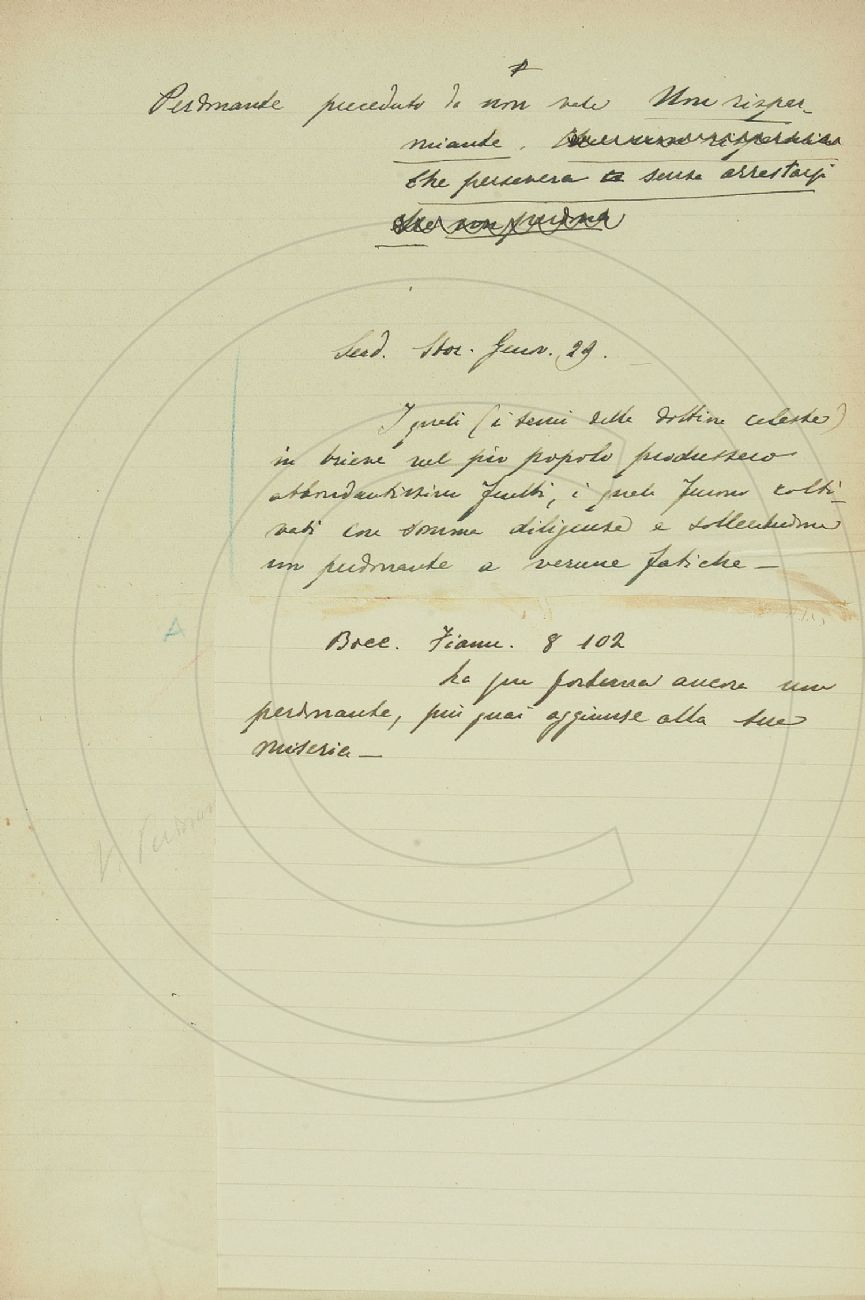 Perdonante preceduto da non vale Non rispar-
miante.
che persevera senza arrestarsi
che non perdona
Serd. Stor. Genov. 29.
I quali (i semi della dottrina celeste)
in brieve nel pio popolo produssero
abbondantissimi frutti, i quali furono colti-
vati con somma diligenza e sollecitudine
non perdonante a veruna fatiche —
A
Bocc. Fiamm. 8 102
la fortuna ancora non
perdonante, più guai aggiunse alla sue
miserie —
V. Perdonar